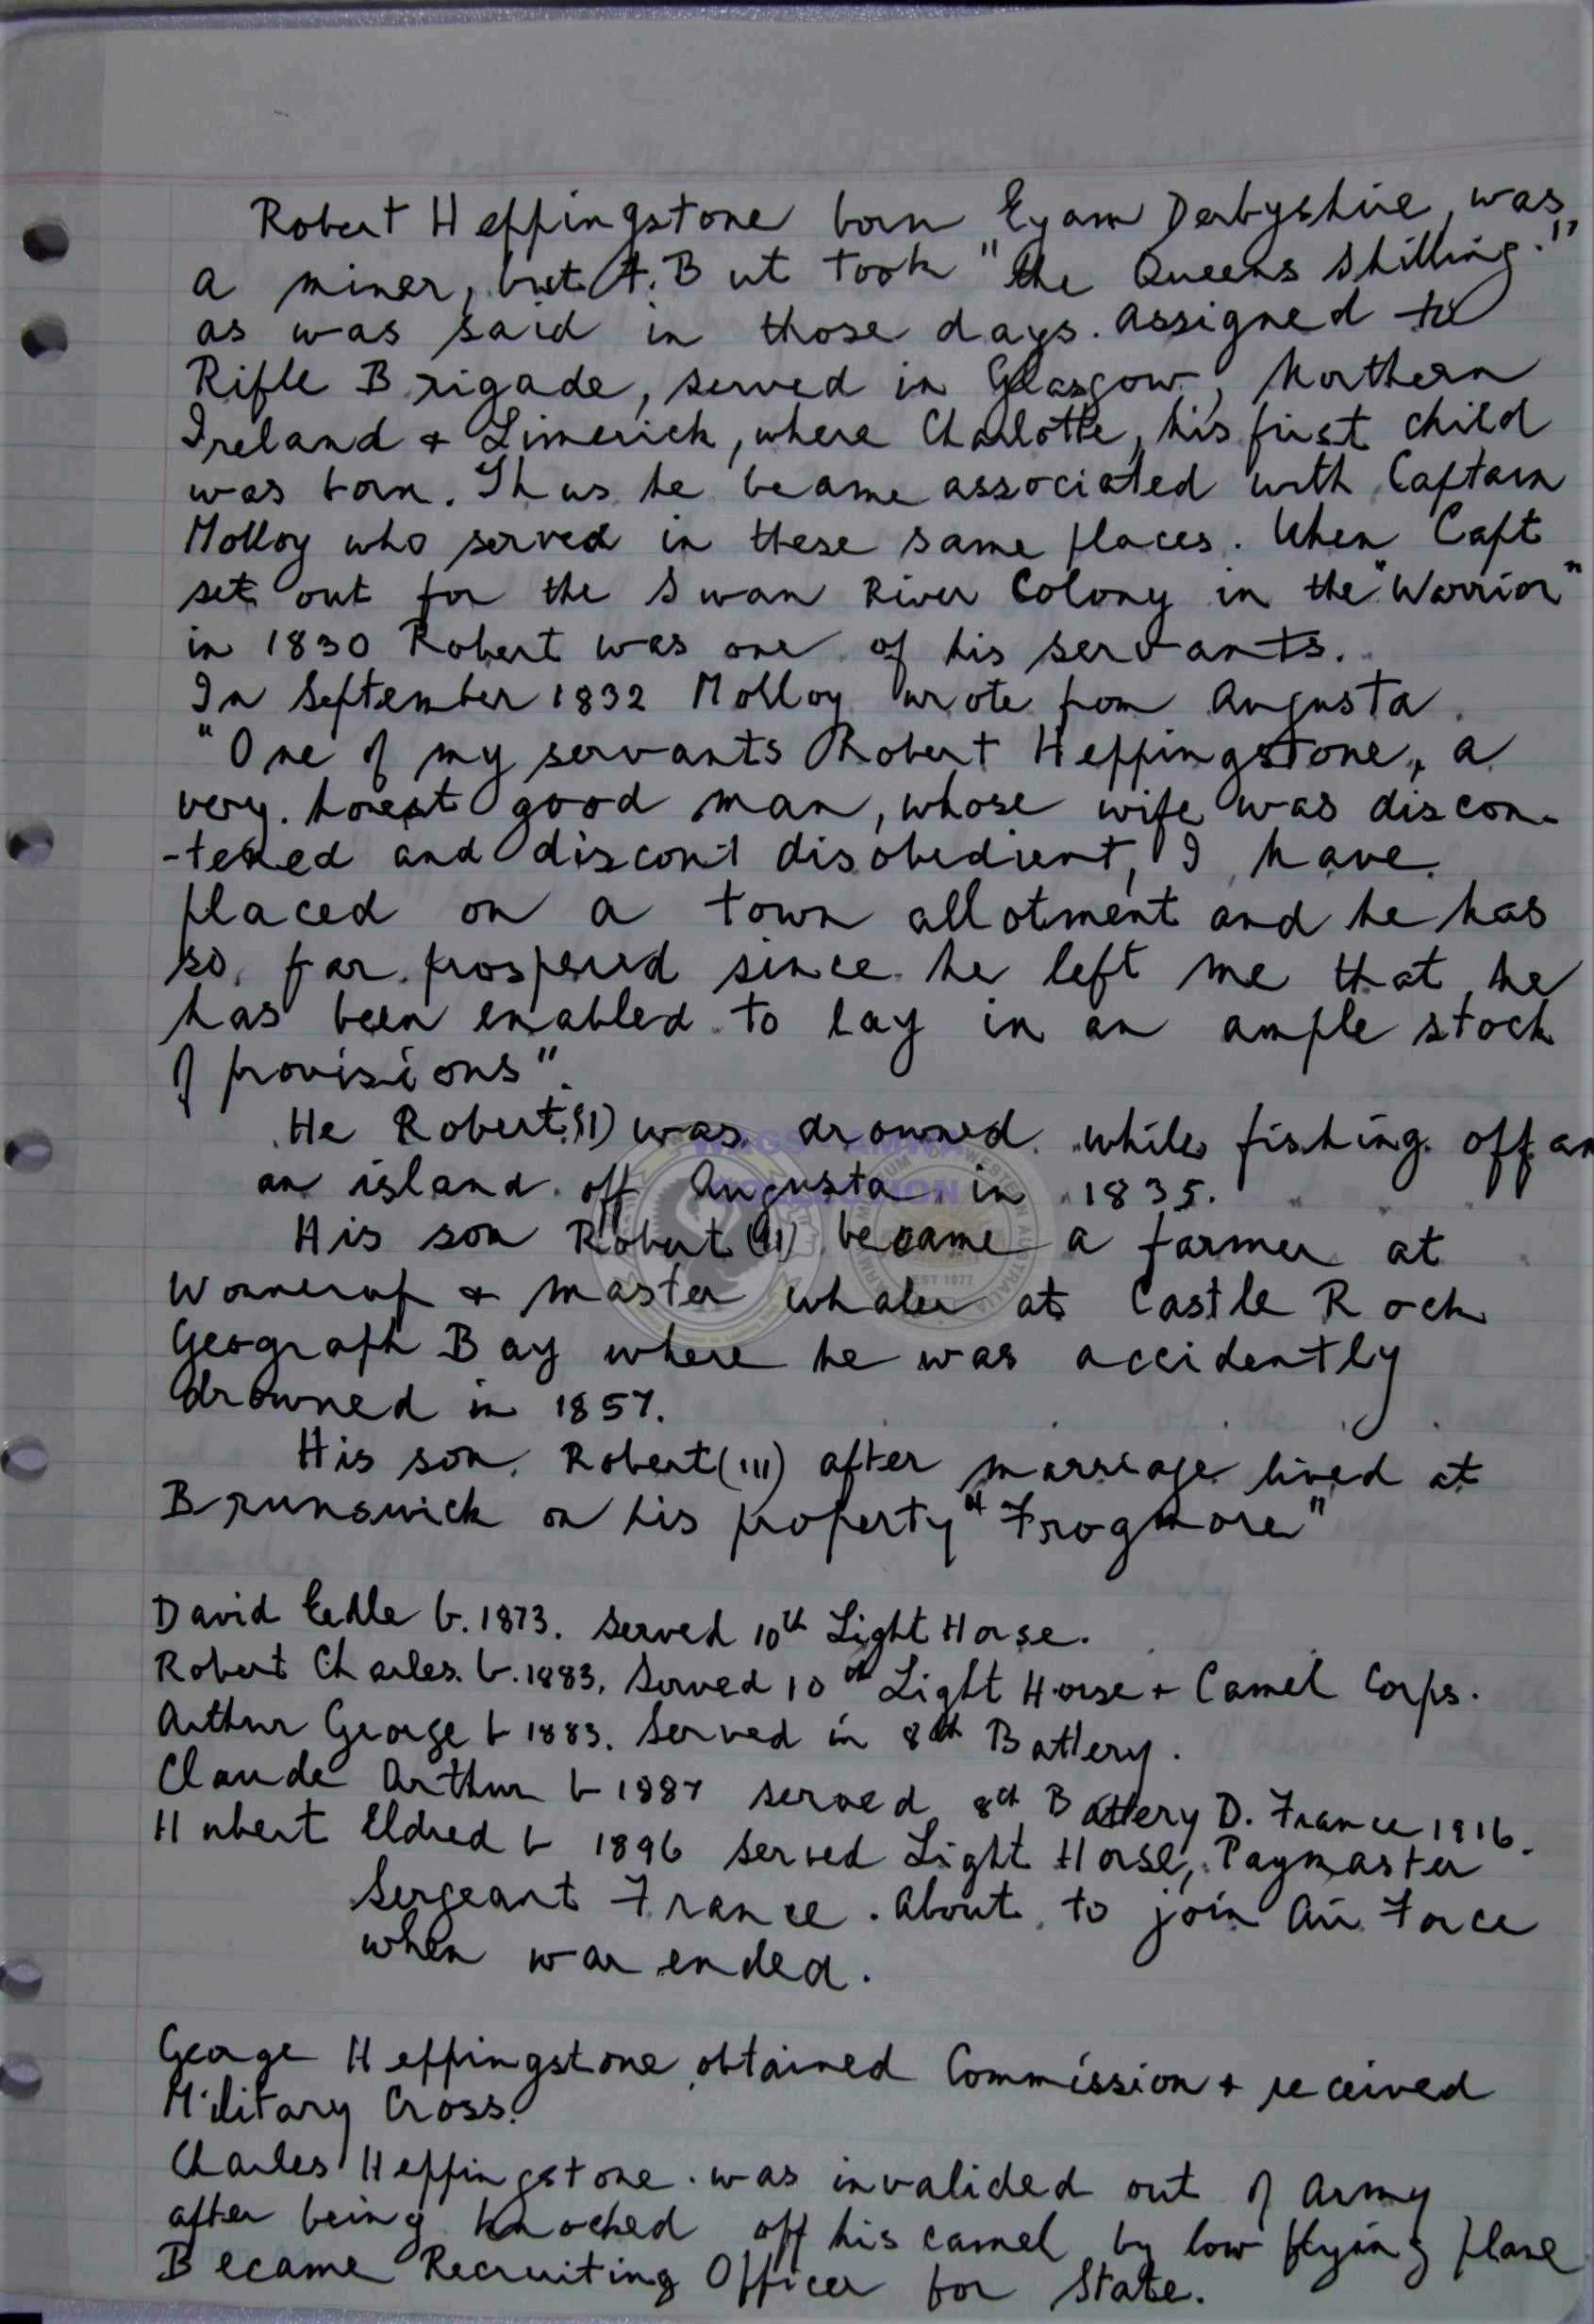 Robert Heppingstone born Eyam Derbyshire, was
a miner, but A. But took "the Queens shilling."
as was said in those days. Assigned to
Rifle Brigade, served in Glasgow, Northern
Ireland + Limerick, where Charlotte, his first child
was born. Thus he became associated with Captain
Molloy who served in these same places. When Capt
set out for the Swan River Colony in the "Warrior"
in 1830 Robert was one of his servants.
In September 1832 Molloy wrote from Augusta
"One of my servants Robert Heppingstone, a
very honest good man, whose wife was discon-
-tened and discont disobedient, I have
placed on a town allotment and he has
so far prospered since he left me that he
has been enabled to lay in an ample stock
of provisions".
He Robert (1) was drowned while fishing off an
an island off Augusta in 1835.
His son Robert (11) became a farmer at
Wonnerup + master whaler at Castle Rock
Geograph Bay where he was accidently
drowned in 1857.
His son, Robert (111) after marriage lived at
Brunswick on his property "Frogmore"
David b. 1873. Served 10th Light Horse.
Robert Charles b. 1883, Served 10th Light Horse + Camel Corps.
Arthur George b 1883. Served in 8th Battery.
Claude Arthur b 1887 served 8th Battery D. France 1916.
Hubert Eldred b 1896 served Light Horse, Paymaster
Sergeant France. About to join Air Force
when war ended.
George Heppingstone obtained Commission + received
Military Cross.
Charles Heppingstone was invalided out of Army
after being knocked off his camel by low flying plane
Became Recruiting Officer for State.
WAGS - AMWA
COLLECTION
EST 1977